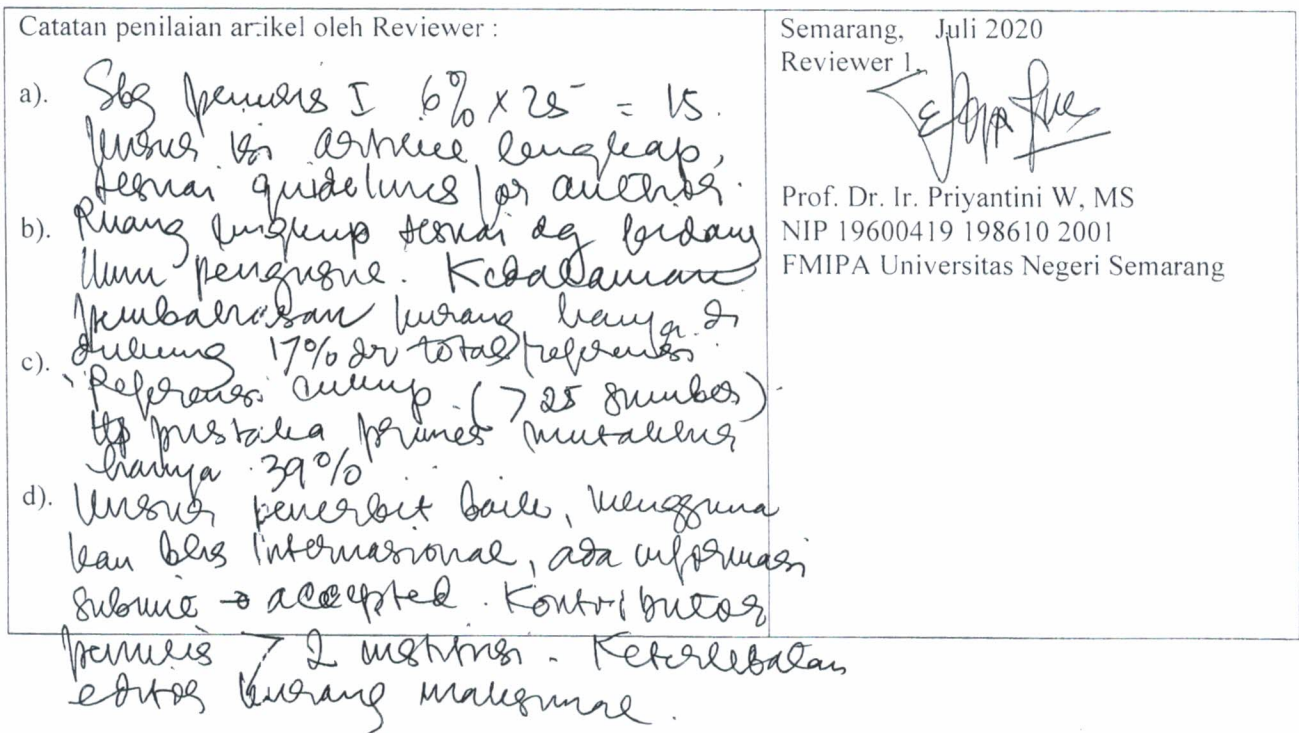 Catatan penilaian artikel oleh Reviewer :
a). Sbg penulis I 6% x 25 = 15.
Unsur isi artikel lengkap,
sesuai guidelines for author.
b). Ruang lingkup sesuai dg bidang
ilmu pengusul. Kedalaman
pembahasan kurang hanya di
dukung 17% dr total referensi
c). Referensi cukup (> 25 sumber)
ttp pustaka primer mutakhir
hanya 39%
d). Unsur penerbit baik, mengguna
kan bhs Internasional, ada informasi
submit → accepted. Kontributor
penulis > 2 institusi. Keterlibatan
editor kurang maksimal.
Semarang, Juli 2020
Reviewer 1,
Prof. Dr. Ir. Priyantini W, MS
NIP 19600419 198610 2001
FMIPA Universitas Negeri Semarang